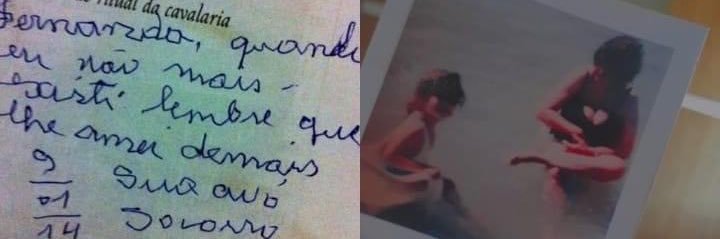 ritual da cavalaria
Fernanda, quando
eu não mais -
existi lembre que
lhe amei demais
9 Sua avó
01 Socorro
14